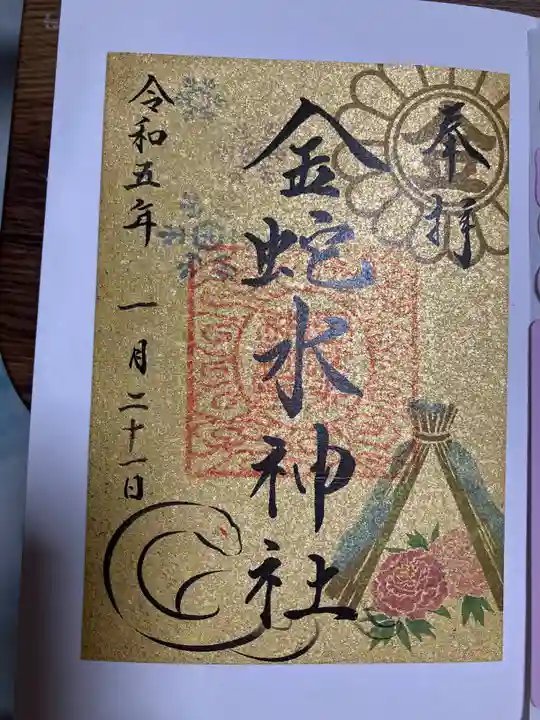 奉拝
金蛇水神社
令和五年 一月二十一日